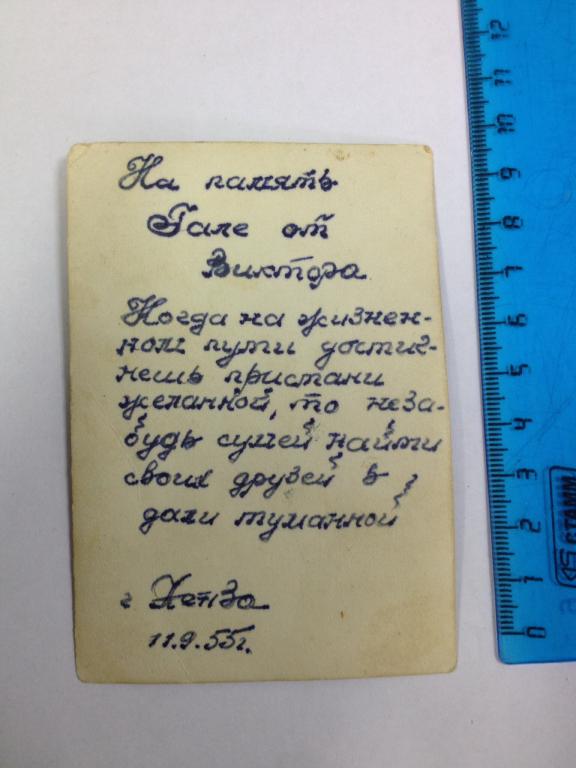 На память
Гале от
Виктора
Когда на жизнен-
ном пути достиг-
нешь пристани
желанной, то неза-
будь сумей найти
своих друзей в
дали туманной
г Пенза
11.9.55г.
12
11
10
9
8
7
6
5
4
3
2
1
0
СТАММ